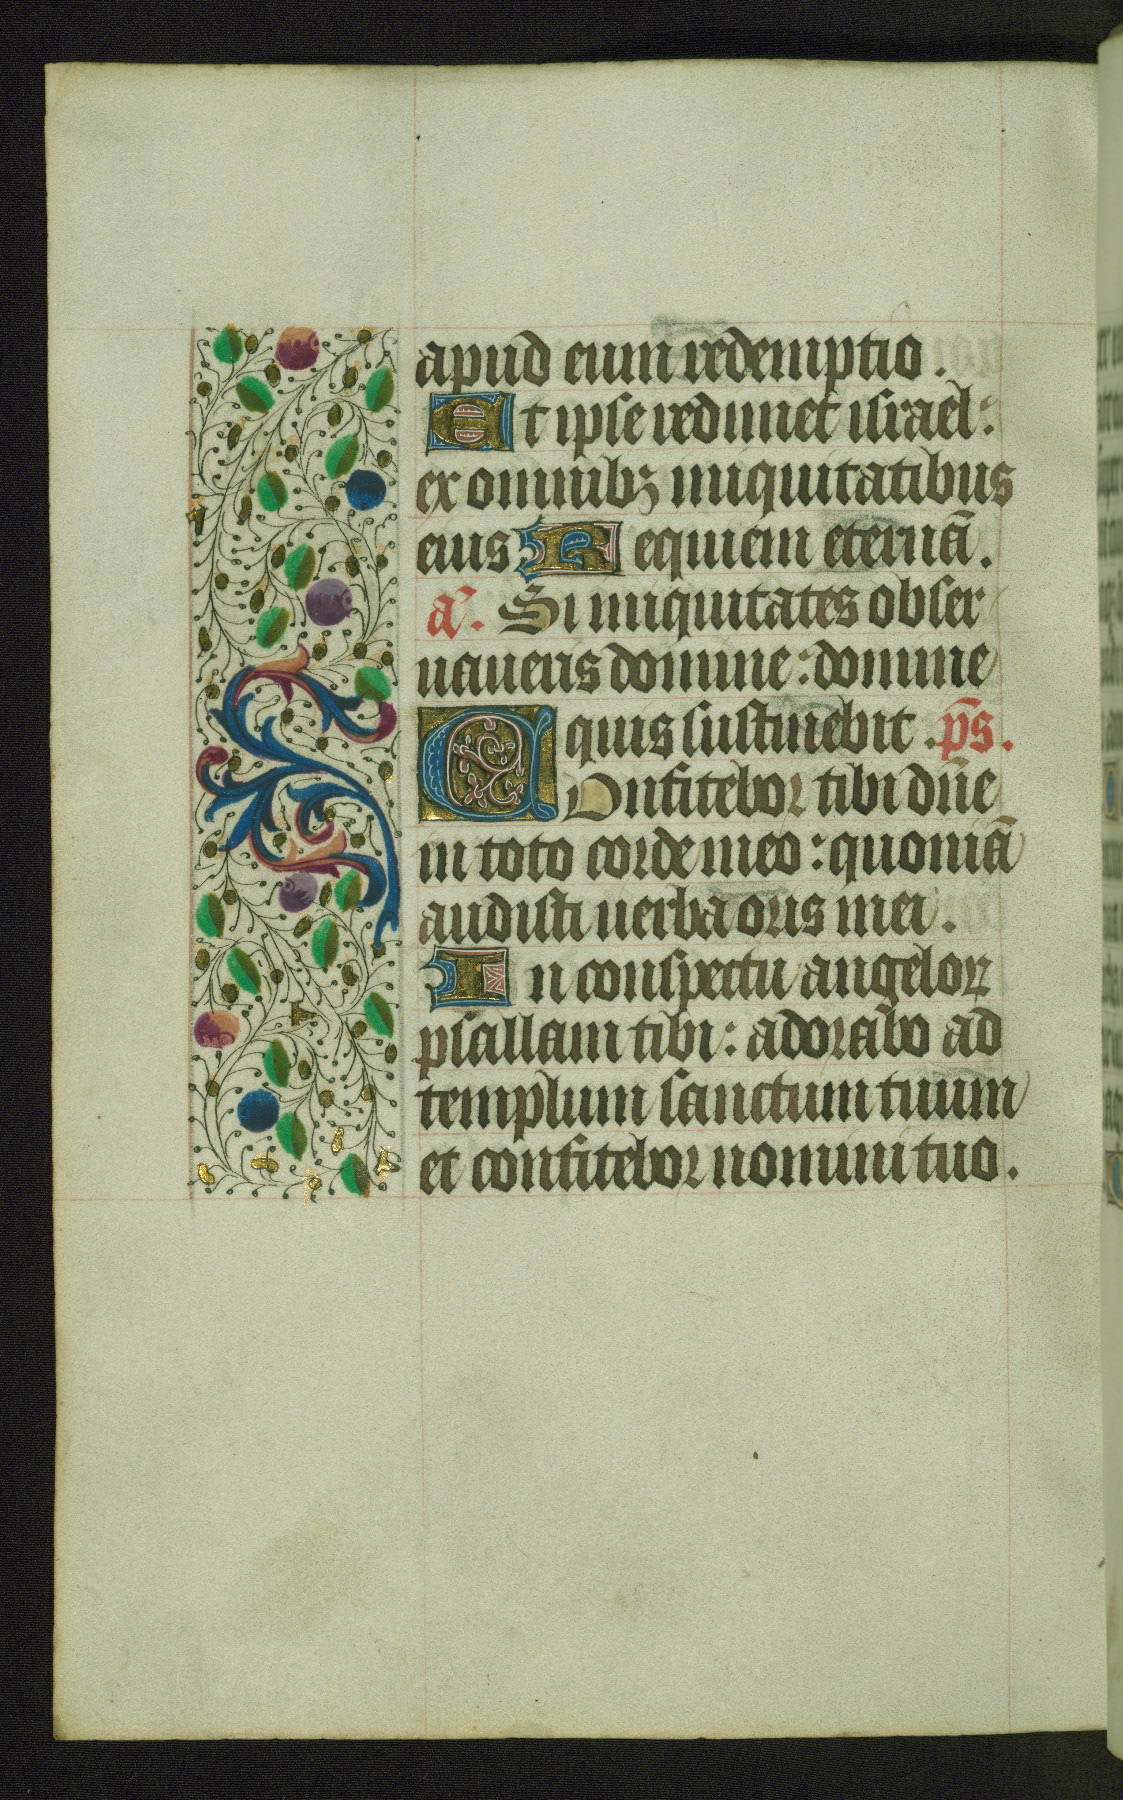 apud eum redemptio.
Et ipse redimet israel:
ex omnibꝫ iniquitatibus
eius Requiem eternā.
a᷒. Si iniquitates obser
uaueris domine: domine
quis sustinebit. p̄s.
Confitebor tibi dn̄e
in toto corde meo: quoniā
audisti uerba oris mei.
In conspectu angeloꝝ
psallam tibi: adorabo ad
templum sanctum tuum
et confitebor nomini tuo.